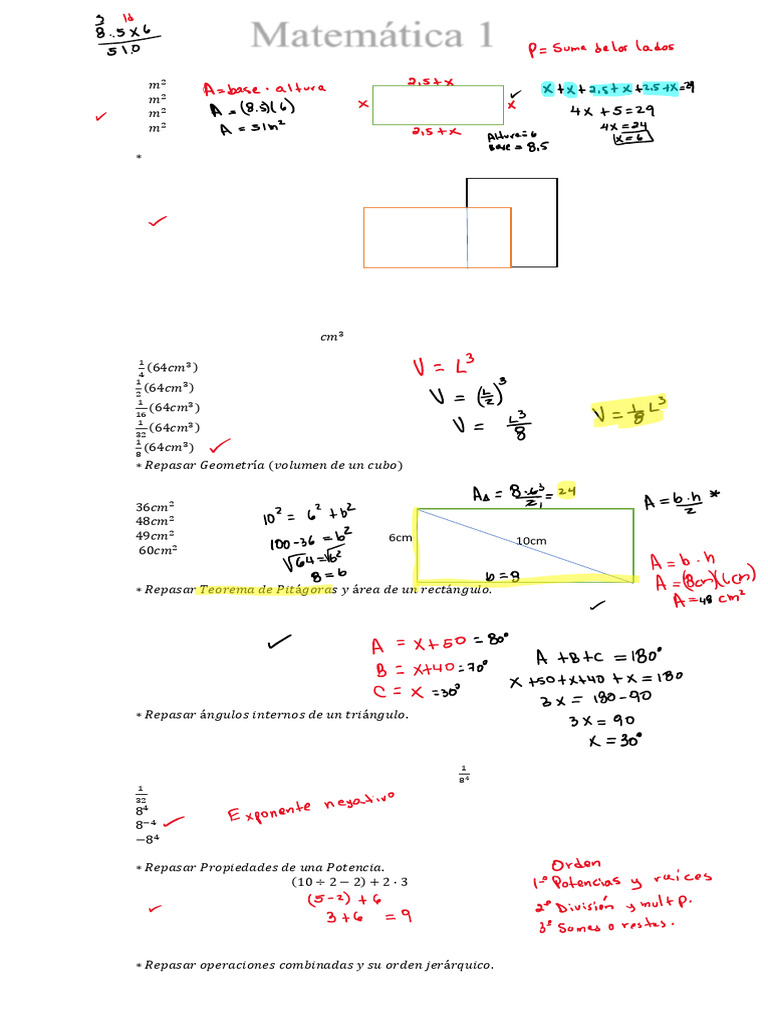 3 10
8.5x6
510
Matemática 1
P = Suma de los lados
m²
m²
m²
m²
A = base · altura
A = (8.5)(6)
A = 51m²
2,5+x
x
x
2,5+x
Altura=6
Base = 8,5
x+x+2,5+x+2,5+x=29
4x+5=29
4x=24
x=6
*
cm³
1/4 (64cm³)
1/2 (64cm³)
1/16 (64cm³)
1/32 (64cm³)
1/8 (64cm³)
V = L³
V = (L/2)³
V = L³/8
V = 1/8 L³
* Repasar Geometría (volumen de un cubo)
36cm²
48cm²
49cm²
60cm²
10² = 6² + b²
100-36 = b²
√64 = √b²
8 = b
A△ = 8·6³/2₁ = 24
6cm
10cm
b=8
A = b·h/2 *
A = b·h
A = (8cm)(6cm)
A = 48 cm²
* Repasar Teorema de Pitágoras y área de un rectángulo.
A = x+50 = 80°
B = x+40 = 70°
C = x = 30°
A + B + C = 180°
x+50+x+40+x = 180
3x = 180-90
3x = 90
x = 30°
* Repasar ángulos internos de un triángulo.
1/8⁴
1/32
8⁴
8⁻⁴
−8⁴
Exponente negativo
* Repasar Propiedades de una Potencia.
(10 ÷ 2 − 2) + 2 · 3
(5-2) + 6
3+6 = 9
Orden
1º Potencias y raíces
2º División y multp.
3º Somas o restas.
* Repasar operaciones combinadas y su orden jerárquico.